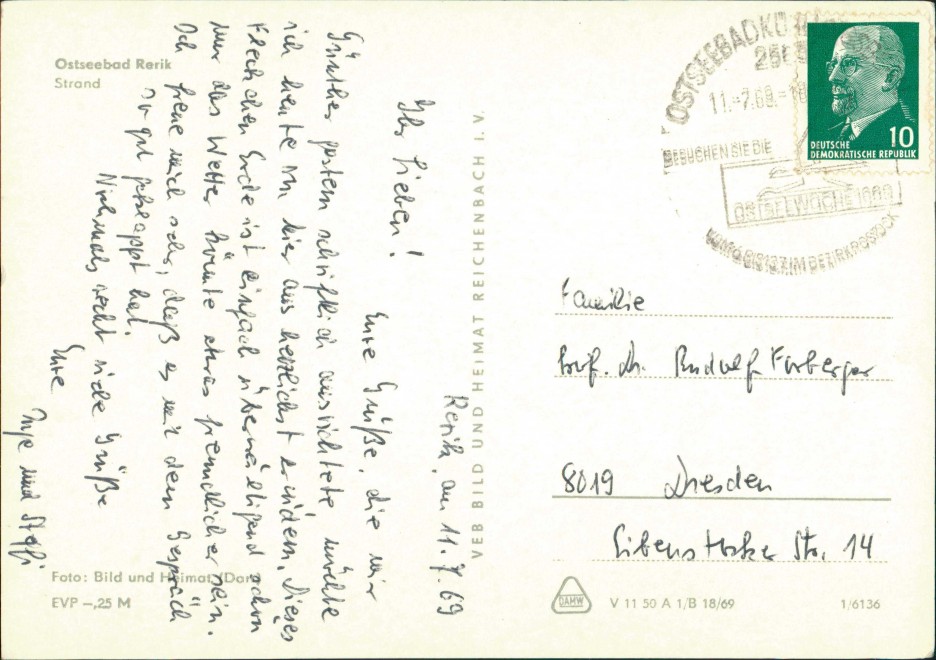 Ostseebad Rerik
Strand
Rerik, am 11.7.69
Ihr Lieben!
Eure Grüße, die wir
Günther gestern schriftlich ausrichtete, möchte
ich heute von hier aus herzlichst erwidern. Dieses
Fleckchen Erde ist einfach überwältigend schon
nur das Wetter könnte etwas freundlicher sein.
Ich freue mich sehr, daß es mit dem Gespräch
so gut geklappt hat.
Nochmals recht viele Grüße
Eure
Inge und Steffi
Foto: Bild und Heimat
EVP –,25 M
VEB BILD UND HEIMAT REICHENBACH I. V.
OSTSEEBAD
11.-7.69.-18
BESUCHEN SIE DIE
OSTSEEWOCHE 1969
IM BEZIRK ROSTOCK
10
DEUTSCHE
DEMOKRATISCHE REPUBLIK
Familie
Prof. Dr. Rudolf Forberger
8019 Dresden
Eibenstocker Str. 14
DAMW
V 11 50 A 1/B 18/69
1/6136